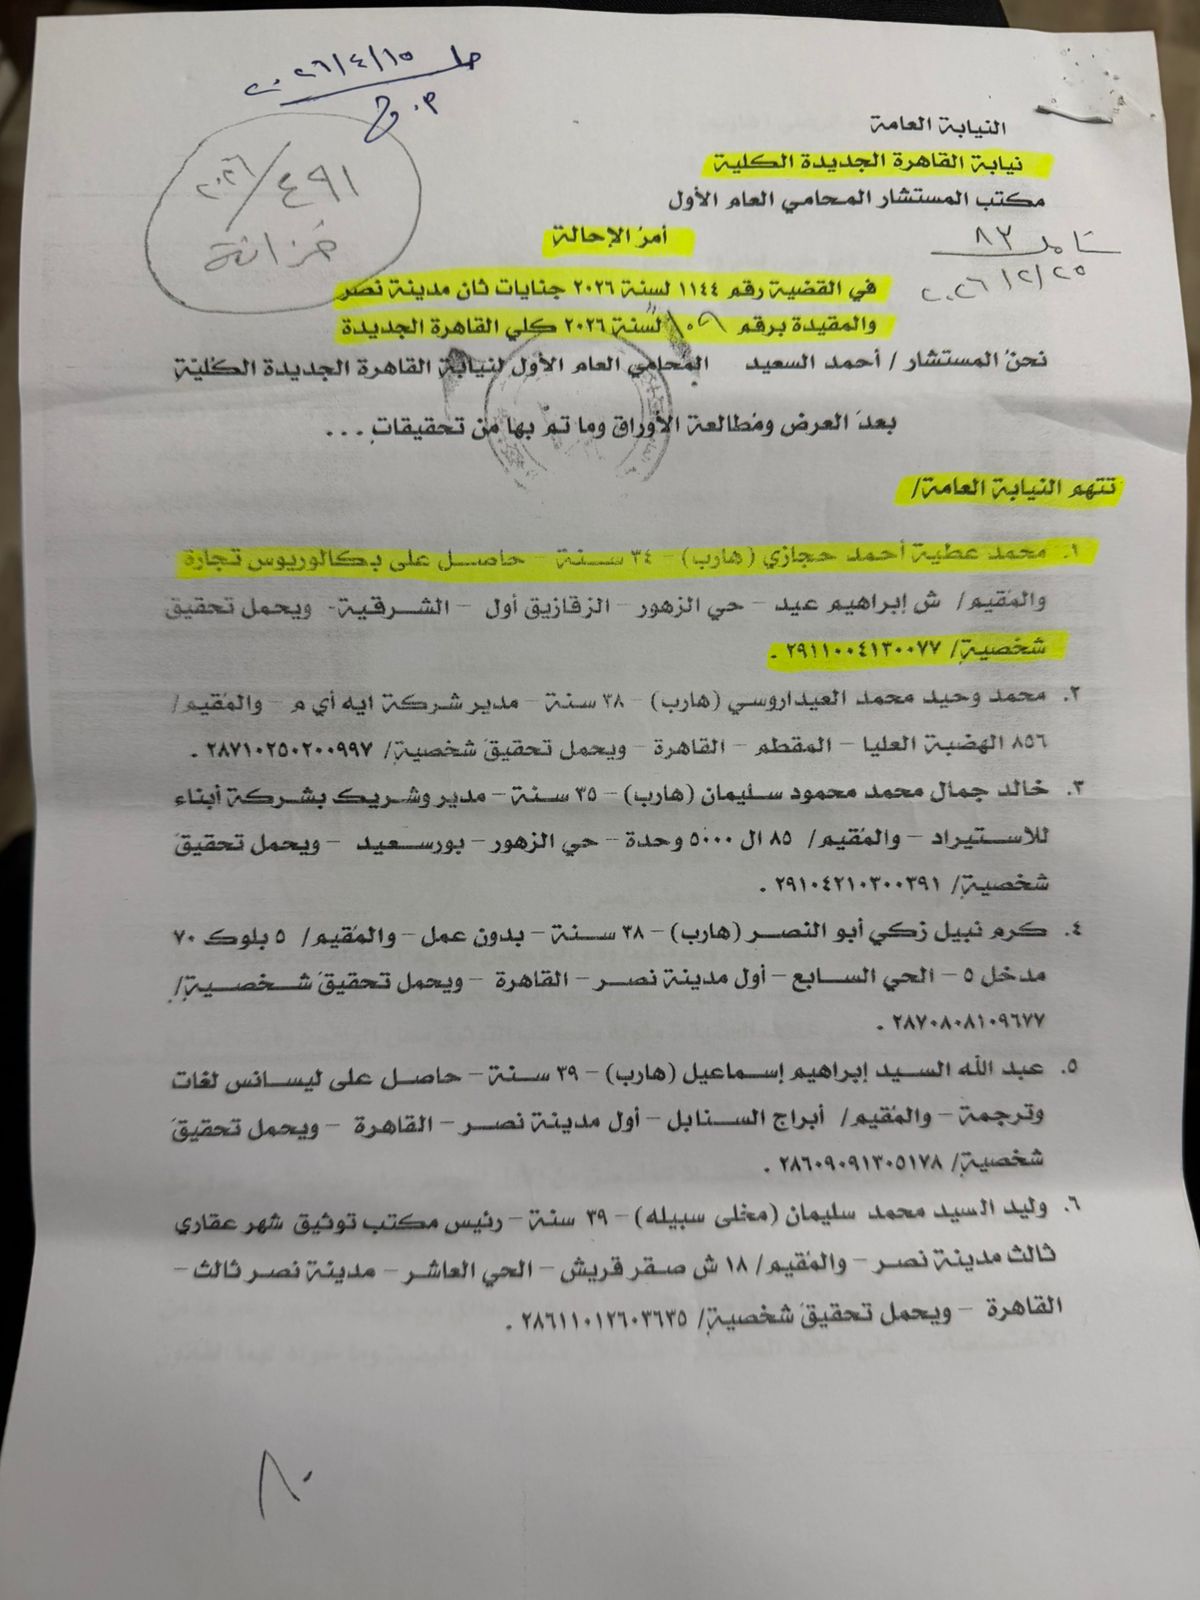 جلسة ٢٠٢٦/٤/١٥
٤٩١ / ٢٠٢٦
خزانة
النيابة العامة
نيابة القاهرة الجديدة الكلية
مكتب المستشار المحامي العام الأول
٨٣
٢٠٢٦/٢/٢٥
أمرُ الإحالة
في القضية رقم ١١٤٤ لسنة ٢٠٢٦ جنايات ثان مدينة نصر
والمقيدة برقم لسنة ٢٠٢٦ كلي القاهرة الجديدة
نحنُ المستشار / أحمد السعيد المحامي العام الأول لنيابة القاهرة الجديدة الكلية
بعدَ العرض ومُطالعة الأوراق وما تمَّ بها من تحقيقاتٍ ...
تتهم النيابة العامة/
١. محمد عطية أحمد حجازي (هارب) – ٣٤ سنة – حاصل على بكالوريوس تجارة
والمُقيم/ ش إبراهيم عيد – حي الزهور – الزقازيق أول – الشرقية- ويحمل تحقيقَ
شخصيةٍ/ ٢٩١١٠٠٤١٣٠٠٧٧ .
٢. محمد وحيد محمد العيداروسي (هارب) – ٣٨ سنة – مدير شركة ايه أي م – والمُقيم/
٨٥٦ الهضبة العليا – المقطم – القاهرة – ويحمل تحقيقَ شخصيةٍ/ ٢٨٧١٠٢٥٠٢٠٠٩٩٧ .
٣. خالد جمال محمد محمود سليمان (هارب) – ٣٥ سنة – مدير وشريك بشركة أبناء
للاستيراد – والمُقيم/ ٨٥ ال ٥٠٠٠ وحدة – حي الزهور – بورسعيد – ويحمل تحقيقَ
شخصيةٍ/ ٢٩١٠٤٢١٠٣٠٠٣٩١ .
٤. كرم نبيل زكي أبو النصر (هارب) – ٣٨ سنة – بدون عمل – والمُقيم/ ٥ بلوك ٧٠
مدخل ٥ – الحي السابع – أول مدينة نصر – القاهرة – ويحمل تحقيقَ شخصيةٍ/
٢٨٧٠٨٠٨١٠٩٦٧٧ .
٥. عبد الله السيد إبراهيم إسماعيل (هارب) – ٣٩ سنة – حاصل على ليسانس لغات
وترجمة – والمُقيم/ أبراج السنابل – أول مدينة نصر – القاهرة – ويحمل تحقيقَ
شخصيةٍ/ ٢٨٦٠٩٠٩١٣٠٥١٧٨ .
٦. وليد السيد محمد سليمان (مخلى سبيله) – ٣٩ سنة – رئيس مكتب توثيق شهر عقاري
ثالث مدينة نصر – والمُقيم/ ١٨ ش صقر قريش – الحي العاشر – مدينة نصر ثالث –
القاهرة – ويحمل تحقيقَ شخصيةٍ/ ٢٨٦١١٠١٢٦٠٣٦٣٥ .